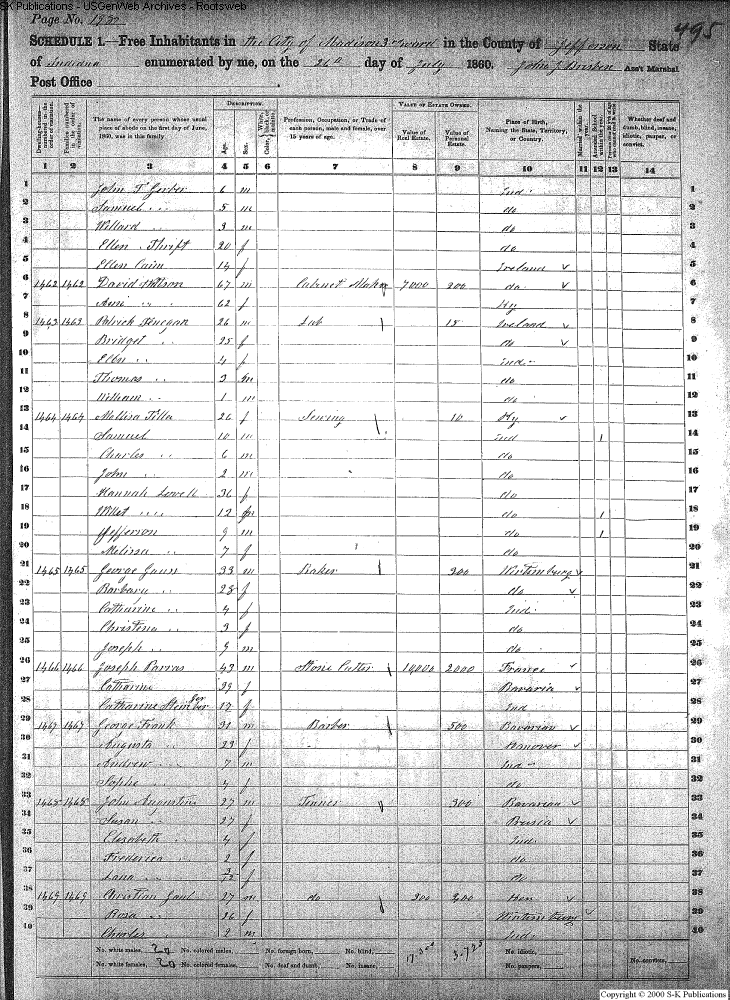 S-K Publications - USGenWeb Archives - Rootsweb
Page No. 193
495
SCHEDULE 1.—Free Inhabitants in The City of Madison 3rd ward in the County of Jefferson State
of Indiana enumerated by me, on the 26th day of July 1860. Ass't Marshal
Post Office
Dwelling-houses numbered in the order of visitation.
Families numbered in the order of visitation.
The name of every person whose usual place of abode on the first day of June, 1860, was in this family.
DESCRIPTION.
Age. Sex. Color,
Profession, Occupation, or Trade of each person, male and female, over 15 years of age.
VALUE OF ESTATE OWNED.
Value of Real Estate. Value of Personal Estate.
Place of Birth, Naming the State, Territory, or Country.
Married within the year.
Whether deaf and dumb, blind, insane, idiotic, pauper, or convict.
1 2 3 4 5 6 7 8 9 10 11 12 13 14
1 John T Gerber 6 m Ind 1
2 Samuel " 5 m do 2
3 Willard " 3 m do 3
4 Ellen Thrift 20 f do 4
5 Ellen Cain 14 f Ireland 5
6 1462 1462 David Wilson 67 m Cabinet Maker 7000 200 do 6
7 " 62 f Ky 7
8 1463 1463 Patrick Finegan 26 m Lab 15 Ireland 8
9 Bridget " 25 f do 9
10 Ellen " 4 f Ind 10
11 Thomas " 3 m do 11
12 William " 1 m do 12
13 1464 1464 26 f Sewing 10 Ky 13
14 Samuel 10 m Ind 1 14
15 Charles " 6 m do 15
16 John " 2 m do 16
17 Hannah Lowell 36 f do 17
18 Willet " 12 m do 1 18
19 Jefferson 9 m do 1 19
20 Melissa " 7 f do 20
21 1465 1465 George Gaun 33 m Baker 300 Wirtemburg 21
22 Barbary " 28 f do 22
23 Catharine " 4 f Ind 23
24 Christena " 3 f do 24
25 Joseph " m do 25
26 1466 1466 Joseph Parras 43 m Stone Cutter 14000 2000 France 26
27 Catharine 39 f Bavaria 27
28 Catharine 17 f Ind 28
29 1467 1467 George Frank 31 m Barber 500 Bavarian 29
30 Augusta " 23 f Hanover 30
31 Andrew " 7 m Ind 31
32 Sophe " 4 f do 32
33 1468 1468 John Augustine 27 m Tinner 300 Bavarian 33
34 Susan " 27 f Prusia 34
35 Elizabeth " 4 f Ind 35
36 Frederica " 2 f do 36
37 Lana " f do 37
38 1469 1469 Christian Gaul 27 m do 300 200 38
39 Rosa " 26 f Wirtemburg 39
40 Charles " 2 m Ind 40
No. white males, 20 No. colored males, No. foreign born, No. blind, No. idiotic,
No. white females, 20 No. colored females, No. deaf and dumb, No. insane, No. paupers, No. convicts,
Copyright © 2000 S-K Publications